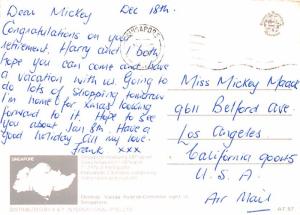 Dear Mickey Dec 18th.
Congratulations on your
retirement. Harry and I both
hope you can come and have
a vacation with us. Going to
do lots of shopping tomorrow
I'm home for xmas looking
forward to it. Hope to see
you about Jan 8th. Have a
good holiday all my love.
Frank xxx
SINGAPORE
Miss Mickey Magee
9611 Belford ave.
Los Angeles
California 90045
U.S.A.
Air Mail
SINGAPORE